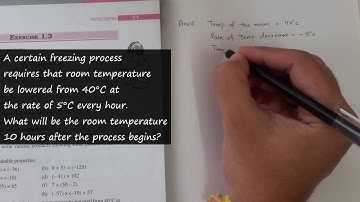 INTEGERS 21
EXERCISE 1.3
A certain freezing process
requires that room temperature
be lowered from 40°C at
the rate of 5°C every hour.
What will be the room temperature
10 hours after the process begins?
Temp of the room = 40°c
Rate of Temp decrease = -5°c
(b) 8 × 53 × (-125)
(d) (-41) × 102
(f) 7 × (50 – 2)
(h) (-57) × (-19) + 57